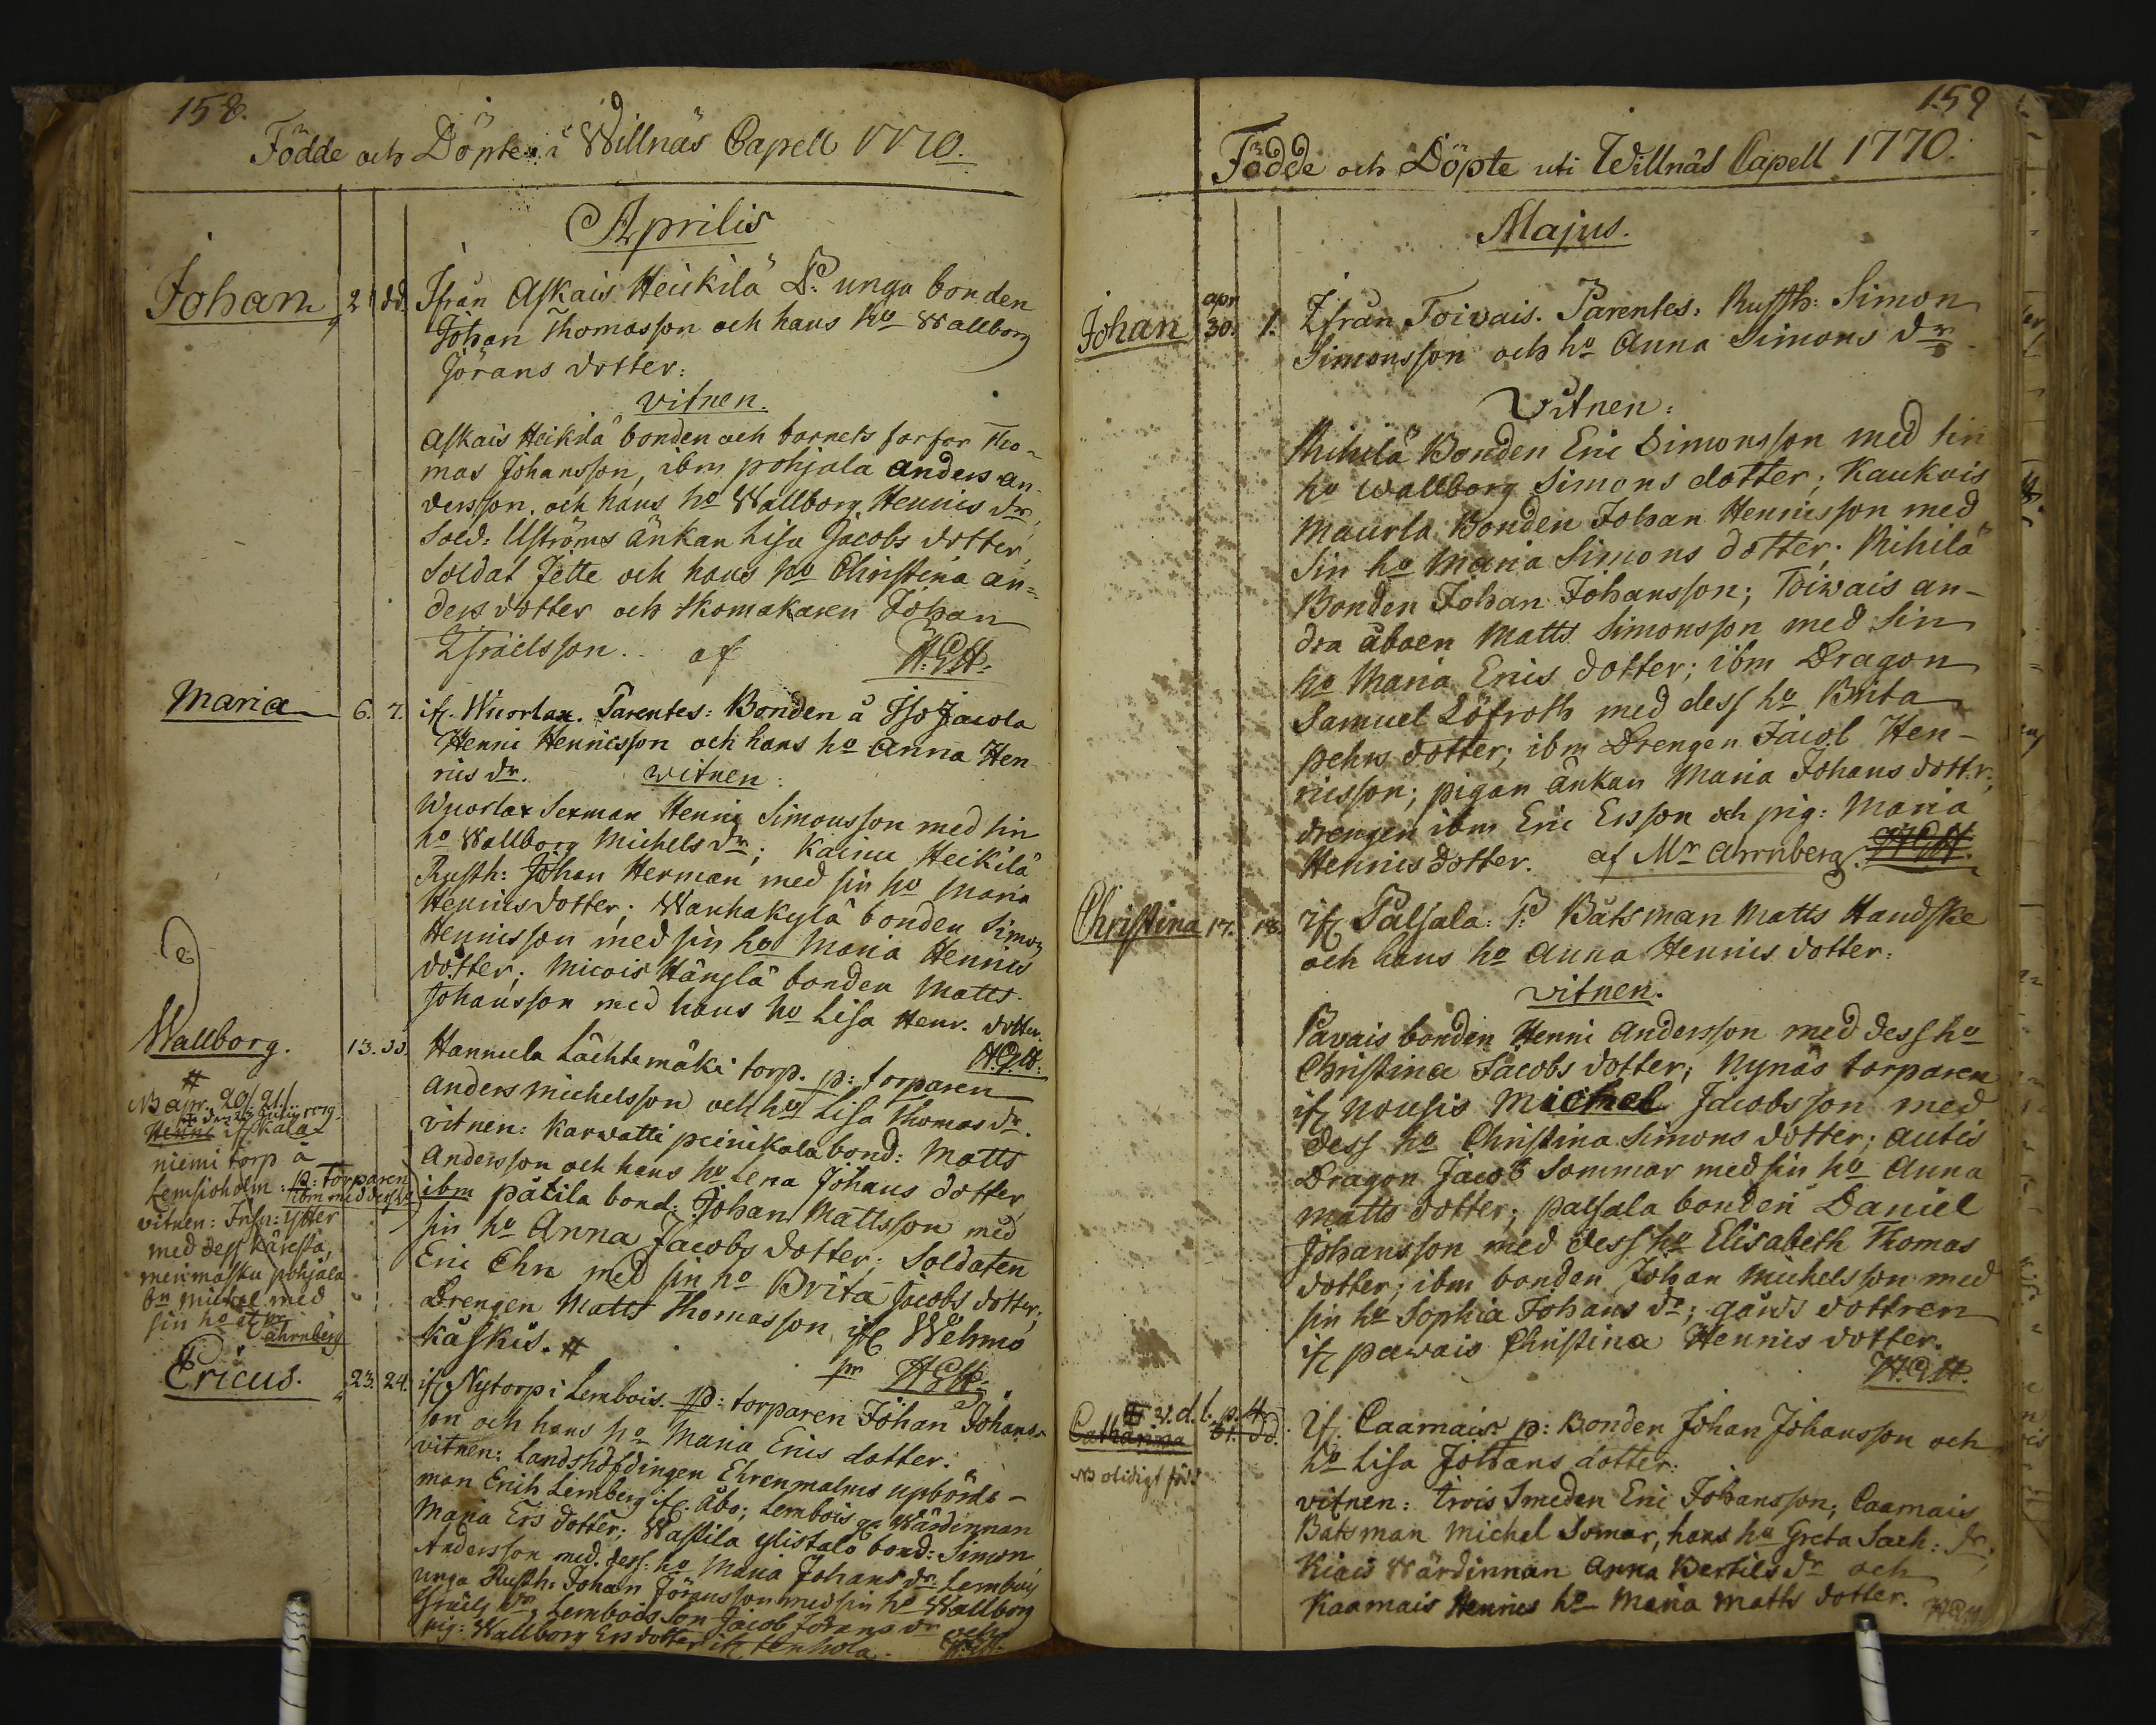 158.
Födde och Döpte i Willnäs Capell 1770.
Aprilis
Johan 21 dd. Ifrån Askais Heickilä P: unga bonden
Johan Thomasson och hans ho Wallborg
Jörans dotter:
vitnen.
Askais Heikilä bonden och barnets farfar Tho-
mas Johansson, ibm pohjala anders an-
dersson, och hans ho Wallborg Henrics dr,
Sold: Uströms änkan Lisa Jacobs dotter,
Soldat Jette och hans ho Christina an-
ders dotter och skomakaren Johan
Israelsson. af H.G.H.
Maria 6. 7. ifr. Wuorlax. Parentes: Bonden å Iso Jacola
Henric Henricsson och hans ho Anna Hen
rics dr. witnen:
Wuorlax Sexman Henric Simonsson med sin
ho Wallborg Michels dr; Kainu Heikilä
Rusth: Johan Herman med sin ho Maria
Henrics dotter; Wanhakylä bonden Simon
Henricsson med sin ho Maria Henrics
dotter; Micois Hänslä bonden Matts
Johansson med hans ho Lisa Henr. dotter.
H.G.H.
Wallborg. 13. dd. Hannula Lächtemäki torp. p: torparen
Anders Michelsson och ho Lisa Thomas dr.
vitnen: Karvatti peinikala bond: Matts
Andersson och hans ho Lena Johans dotter
ibm pätila bond: Johan Mattsson med
sin ho Anna Jacobs dotter; Soldaten
Eric Ehn med sin ho Brita Jacobs dotter;
Drengen Matts Thomasson, ifr Wehmo
Käskis. #
pr H.G.H.
#
NB apr. 20/21.
Henric ifr Kala
niemi torp å
Lemsioholm: p: torparen
ibm med dess ho
vitnen: Insp: Ytter
med dess Käresta,
merimasku pohjala
bn michel med
sin ho etc
pr ahrnberg
Ericus. 23. 24. ifr Nytorp i Lembois. p: torparen Johan Johans-
son och hans ho Maria Erics dotter.
vitnen: Landshöfdingen Ehrenmalms upbörds-
man Erich Lemberg ifr. Åbo; Lembois gg Wärdinnan
Maria Ers dotter; Wastila Ylistalo bond: Simon
Andersson med dess ho Maria Johans dr Lembois
unga Rusth: Johan Göransson med sin ho Wallborg
Israels dr, Lembois Son Jacob Jörans dr och
pig: Wallborg Ers dotter ifr tenhola. H.G.H.
159
Födde och Döpte uti Willnäs Capell 1770.
Majus.
Johan apr 30. 1. Ifrån Toivais. Parentes: Rusth: Simon
Simonsson och ho Anna Simons dr
Vitnen:
Rihilä Bonden Eric Simonsson med sin
ho Wallborg Simons dotter; Kaukois
Maurla Bonden Johan Henricsson med
Sin ho Maria Simons dotter. Rihilä
Bonden Johan Johansson; Toiwais an-
dra åboen Matts Simonsson med Sin
ho Maria Erics dotter; ibm Dragon
Samuel Löfroth med dess ho Brita
pehrs dotter; ibm Drengen Jacob Hen-
ricsson; pigan änkan Maria Johans dott.r;
drengen ibm Eric Ersson och pig: Maria
Henrics dotter. af Mr ahrnberg. H.G.H.
Christina 17. 18. ifr Palsala: P: Båtsman Matts Handske
och hans ho Anna Henrics dotter:
vitnen.
Pavais bonden Henric Andersson med dess ho
Christina Jacobs dotter; Nynäs torparen
ifr Nousis Michel Jacobsson med
dess ho Christina Simons dotter; autis
Dragon Jacob Sommar med sin ho Anna
Matts dotter; palsala bonden Daniel
Johansson med dess ho Elisabeth Thomas
dotter; ibm bonden Johan Michelsson med
sin ho Sophia Johans dr; gårds dottren
ifr pawais Christina Henrics dotter.
H.G.H.
v. d. l. p. 4.
Catharina 31. dd. Ifr: Caamais: p: Bonden Johan Johansson och
ho Lisa Johans dotter:
NB olidigt förd
vitnen: trois Smeden Eric Johansson; Caamais
Batsman Michel Somar, hans ho Greta Sach: dr.
Kiais Wärdinnan Anna Bertils dr och
Kaamais Henrics ho Maria Matts dotter. H.G.H.